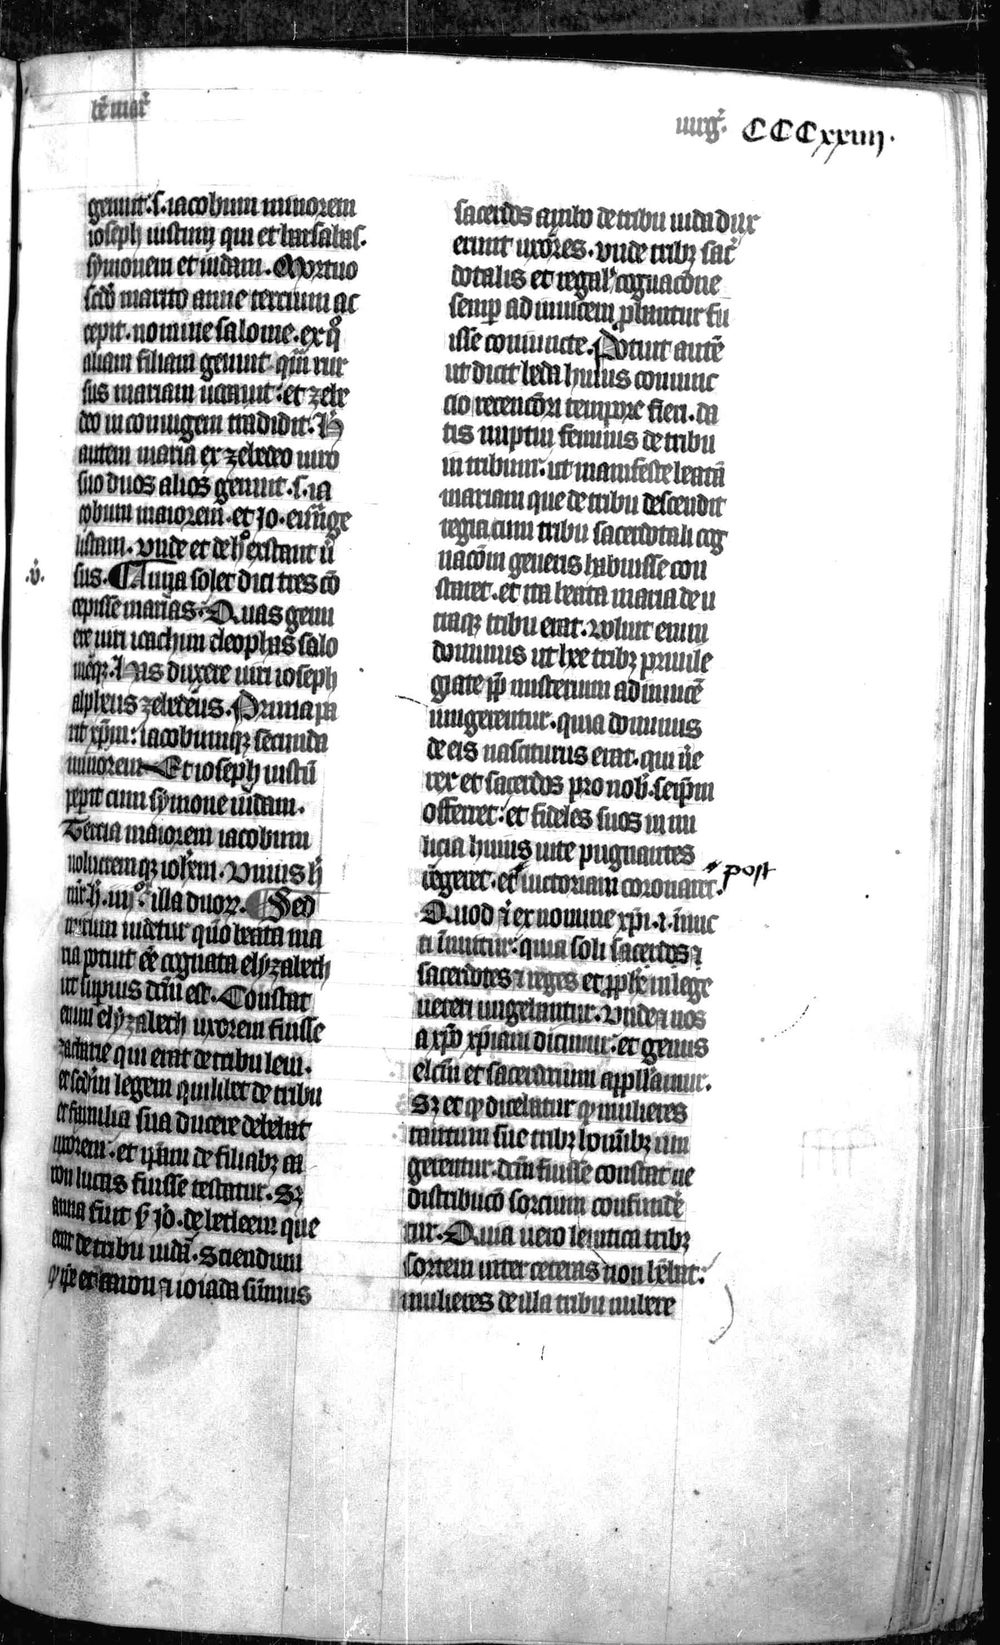 bē mar̄
uirg̃. CCCxxiiij.
genuit. s. iacobum minorem
ioseph iustum qui et barsabas.
symonem et iudam. Mortuo
scd̄o marito anne tercium ac
cepit. nomine salome. ex q̊
aliam filiam genuit quā rur
sus mariam uocauit. et zebe
deo in coniugem tradidit. H̄
autem maria ex zebedeo uiro
suo duos alios genuit. s. ia
cobum maiorem. et Jo. euāge
listam. vnde et de h̊ extant ū
.v̓. sus. Anna solet dici tres cō
cepisse marias. Quas genu
ere uiri ioachim cleophas salo
meqꝫ. Has duxere uiri ioseph
alpheus zebedeus. Prima pa
rit xp̄m. iacobumqꝫ secunda
minorem Et ioseph iustū
peperit cum symone iudam.
Tertia maiorem iacobum
uolucremqꝫ ioh̄em. Vnius h̄
illa duoꝝ. Sed
uidetur quō beata ma
ria potuit eē cognata elyzabeth
ut supius dc̄m est. Constat
enim elyzabeth uxorem fuisse
zacharie qui erat de tribu leui.
et scd̄m legem quilibet de tribu
et familia sua ducere debebat
uxorem. et ip̄am de filiabꝫ aa
ron lucas fuisse testatur. Sꝫ
anna fuit de bethleem que
erat de tribu iuda. Sciendum
et aaron ⁊ ioiada sūmus
sacerdos ambo de tribu iuda dux
erunt uxōres. vnde tribꝫ sac̓
dotalis et regal̓ cognacōne
semp ad inuicem pbantur fu
isse coniuncte. Potuit autē
ut dicit beda huius coniunc
cio recencōri tempore fieri. da
tis nuptui feminis de tribu
in tribum. ut manifeste beatā
mariam que de tribu descendit
regia cum tribu sacerdotali cog
nacōm generis habuisse con
staret. et ita beata maria de u
traqꝫ tribu erat. voluit enim
dominus ut hee tribꝫ priuile
giate pp̄ misterium ad inuicē
iungerentur. quia dominus
de eis nasciturus erat. qui ūe
rex et sacerdos pro nob̓ seip̄m
offerret. et fideles suos in mi
licia huius uite pugnantes
regeret. et uictoriam coronaret. post
Quod ⁊ ex nomine xp̄i. ⁊. īnuc
ti īnuitur. quia soli sacerdos ⁊
sacerdotes ⁊ reges et pphē in lege
ueteri ungebantur. Vnde ⁊ nos
a xp̄o xp̄iani dicimur. et genus
elc̄m et sacerdotium appll̄amur.
Sꝫ et dicebatur mulieres
tantum sue tribꝫ hoīnibꝫ iun
gerentur. dc̄m fuisse constat ne
distribucō sorcium confunde
tur. Quia uero leuitica tribꝫ
sortem inter ceteras non hēbat.
mulieres de illa tribu nubere